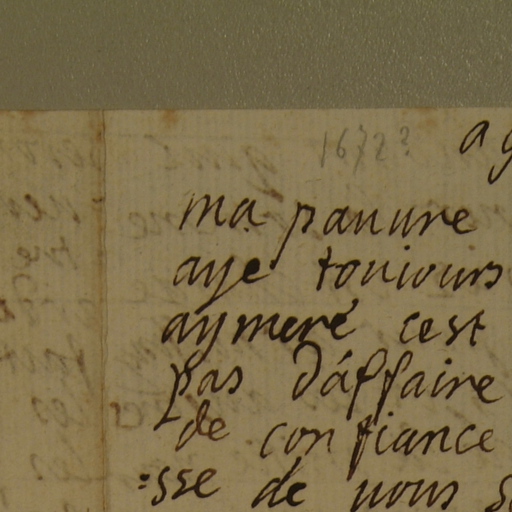 1672?
ma pauure
aye touiours
aymeré cest
pas d'affaire
de confiance
:sse de vous